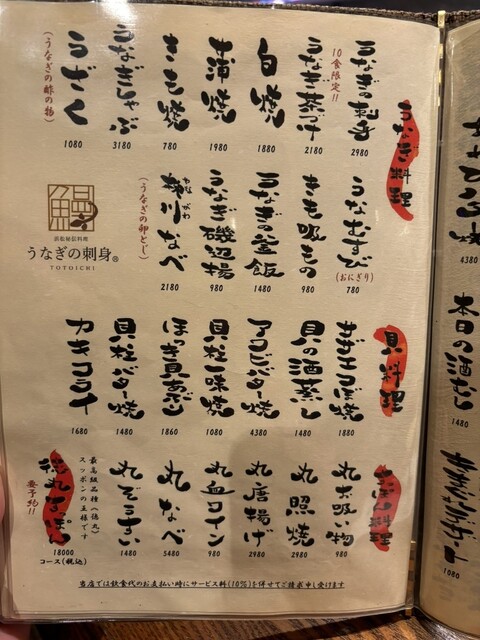 うなぎ料理
うなぎの刺身
2980
10食限定!!
うなぎ茶づけ
2180
白焼
1880
蒲焼
1980
きも焼
780
うなぎしゃぶ
3180
うざく
(うなぎの酢の物)
1080
うなむすび
(おにぎり)
780
きも吸もの
980
うなぎの釜飯
1480
うなぎ磯辺揚
980
柳川なべ
やながわ
(うなぎの卵とじ)
2180
浜松秘伝料理
うなぎの刺身®
TOTOICHI
貝料理
サザエつぼ焼
1880
貝の酒蒸し
1480
アワビバター焼
4380
貝柱一味焼
1080
ほっき貝あぶり
1860
貝柱バター焼
1480
カキフライ
1680
すっぽん料理
丸お吸い物
980
丸照焼
2980
丸唐揚げ
2980
丸血ワイン
980
丸なべ
5480
丸ぞうすい
1480
最高級品種(徳丸)
スッポンの王様です
徳丸すっぽん
要予約!!
18000
コース(税込)
当店では飲食代のお支払い時にサービス料(10%)を併せてご請求申し受けます
4380
本日の酒むし
1480
1080